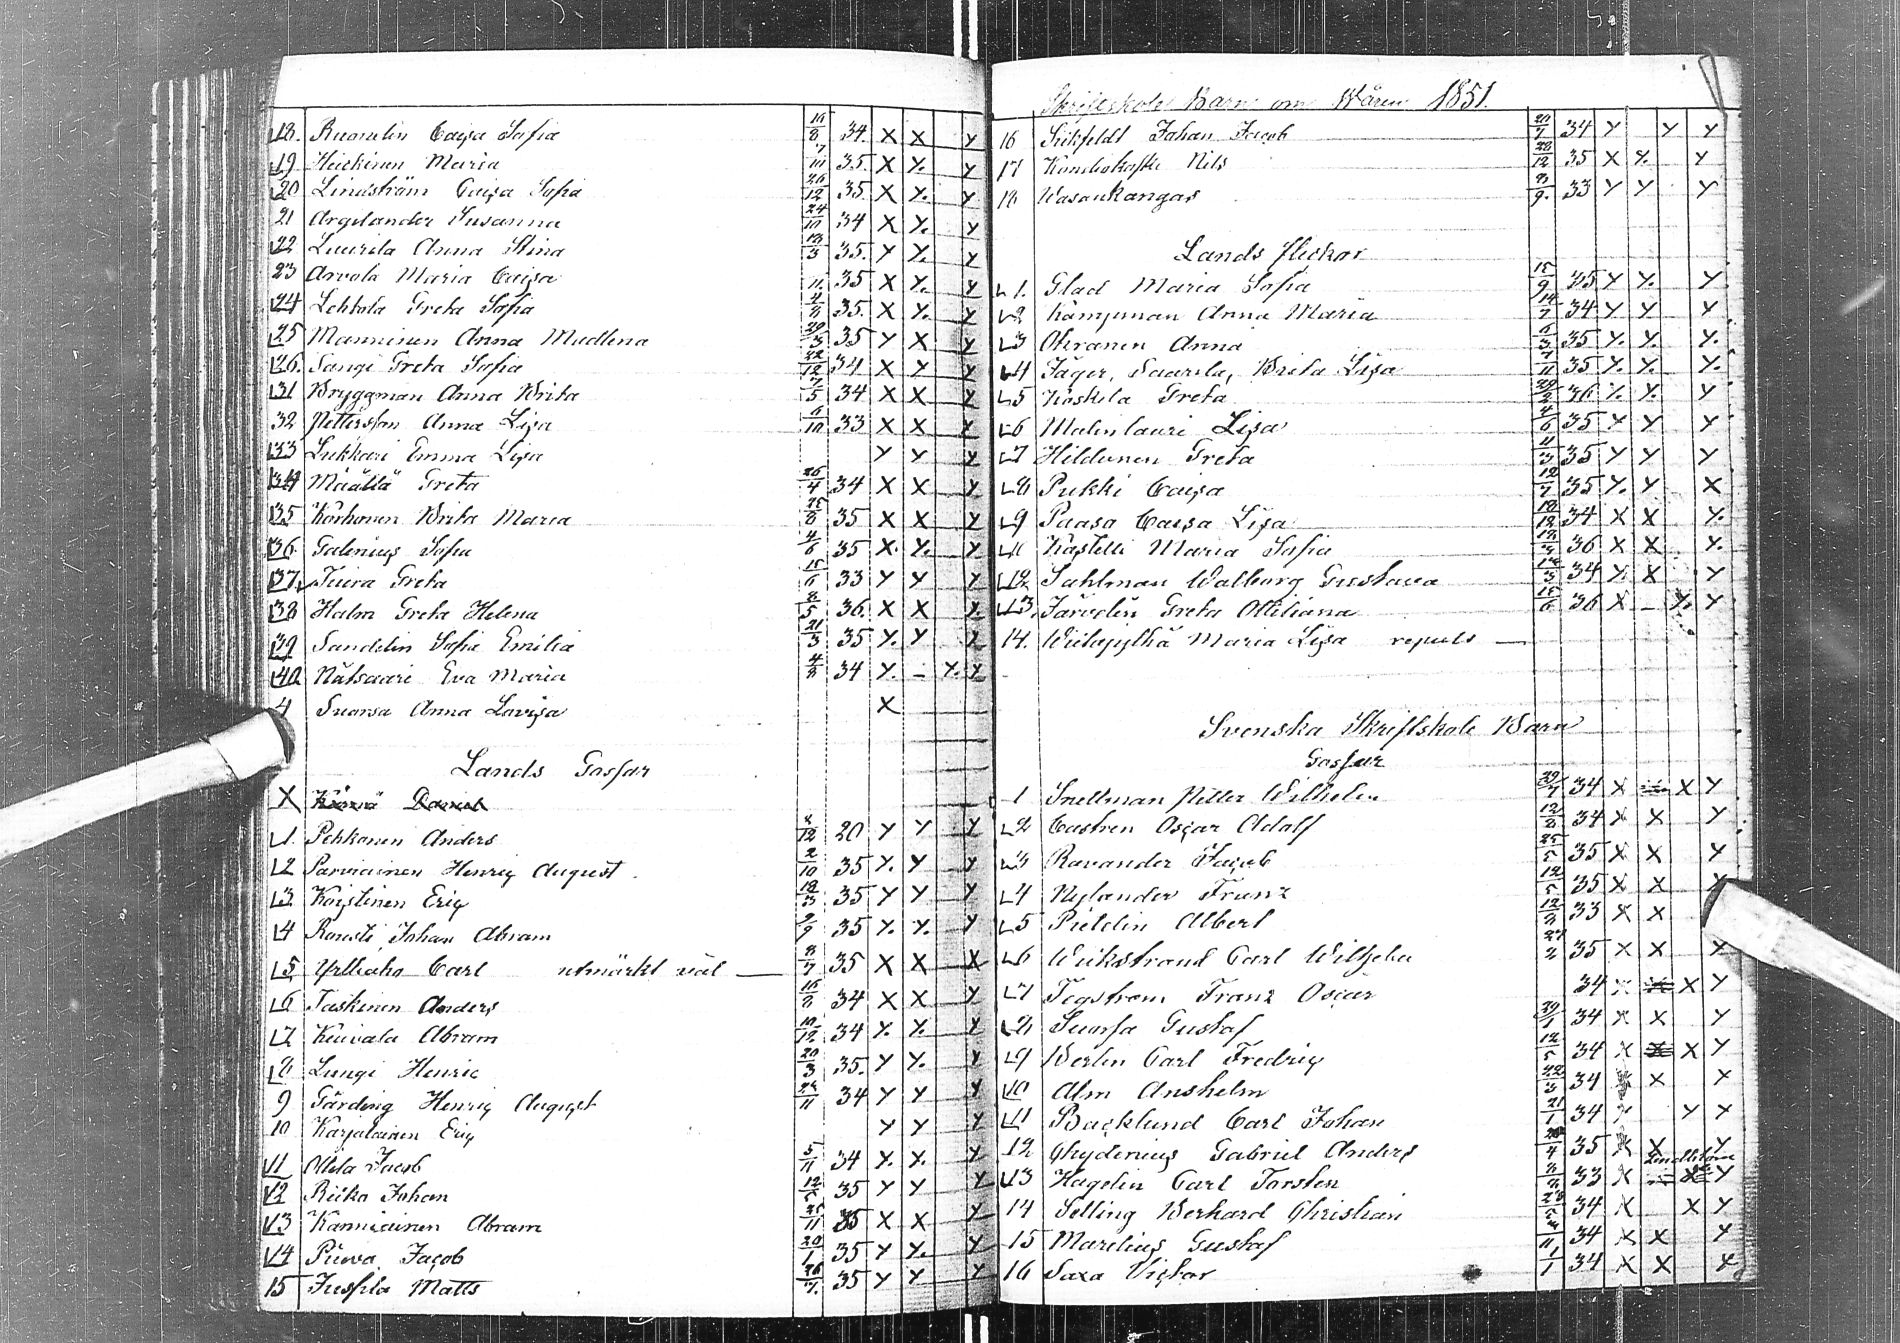 18. Ruonelin Caisa Sofia 34 X X Y
19 Heickinen Maria 7/10 35. X Y. Y
20 Lindström Caisa Sofia 26/12 35 X Y. Y
21 Argelander Susanna 24/10 34 X Y. Y
22 Laurila Anna Stina 13/3 35. Y Y. Y
23 Arvola Maria Caisa 35 X Y. Y
24 Lehtola Greta Sofia 35. X Y. Y
25 Manninen Anna Madlena 29/3 35 Y X Y
26. Sangi Greta Sofia 22/12 34 X Y Y
31 Bryggman Anna Brita 7/5 34 X X Y
32 Pettersson Anna Lisa 6/10 33 X X Y
33 Sukkari Emma Lisa Y Y Y
34 Määttä Greta 26/4 34 X X Y
35 Korhonen Brita Maria 35 X X Y
36 Galenius Sofia 4/6 35 X. Y. Y
37. Tuira Greta 15/6 33 Y Y Y
38 Halm Greta Helena 8/5 36. X X Y.
39 Sandelin Sofia Emilia 21/3 35 Y. Y
40 Nätsaari Eva Maria 4/8 34 Y. – Y. Y
4 Suorsa Anna Lovisa X
Lands Gossar
X Daniel
1 Pehkonen Anders 20 Y Y Y
2 Parviainen Henric August 2/10 35 Y. Y Y
3 Koistinen Eric 35 Y Y Y
4 Rousti Johan Abram 35 Y. Y. Y
5 Yrttiaho Carl utmärkt väl — 8/7 35 X X X
6 Taskinen Anders 16/8 34 X X Y
7 Keivala Abram 10/12 34 Y. Y. Y
8 Lungi Henric 20/3 35. Y Y. Y
9 Gärding Henric August 34 Y Y Y
10 Karjalainen Eric Y Y Y
11 Ollila Jacob 5/11 34 Y. Y. Y
12 Riika Johan 35 Y Y Y
13 Kanniainen Abram 25/11 35 X X Y
14 Piirva Jacob 20/1 35 Y Y. Y
15 Juspila Matts 26/7. 35 Y Y Y
Skriftskole Barn om Våren 1851.
16 Johan Jacob 20/7 34 Y Y Y
17 Kondiokoski Nils 28/12 35 X Y. Y
18 Wasankangas 33 Y Y Y
Lands flickor
1. Glad Maria Sofia 15/9 35 Y Y. Y
2 Kämpman Anna Maria 14/7 34 Y Y Y
3 Ohranen Anna 6/3 35 Y. Y. Y.
4 Jäger, Saarela, Brita Lisa 7/11 35 Y. Y. Y.
5 Koskela Greta 29/2 36 Y. Y. Y
6 Matinlauri Lisa 4/6 35 Y Y Y
7 Hildunen Greta 11/3 35 Y Y Y
8 Pukki Caisa 12/7 35 Y. Y X
9 Paaso Caisa Lisa 34 X X Y.
11 Kastelli Maria Sofia 36 X X Y.
12 Sahlman Walborg Gustava 34 Y. X Y
13. Järvelin Greta Ottiliana 15/6 36 X – Y. Y
14. Wiitapylkä Maria Lisa repuls —
Svenska Skriftskole Barn
Gossar
1 Snellman Petter Wilhelm 29/7 34 X X Y
2 Castren Oscar Adolf 12/8 34 X X Y
3 Ravander Jacob 25/5 35 X X Y
4 Nylander Franz 12/5 35 X X Y
5 Pieldin Albert 33 X X
6 Wiikstrand Carl Wilhelm 27/2 35 X X Y
7 Tegstrom Franz Oscar 34 X X X Y
8 Suorsa Gustaf 29/1 34 X X Y
9 Berlin Carl Fredric 12/5 34 X X X Y
10 Alm Anshelm 22/3 34 X X Y
11 Backlund Carl Johan 21/1 34 Y Y Y
12 Chydenius Gabriel Anders 35 X X Y
13 Hagelin Carl Torsten 33 X Y
14 Selling Berhard Christian 34 X X Y
15 Marelius Gustaf 34 X X Y
16 Saxa Victor 1/1 34 X X Y